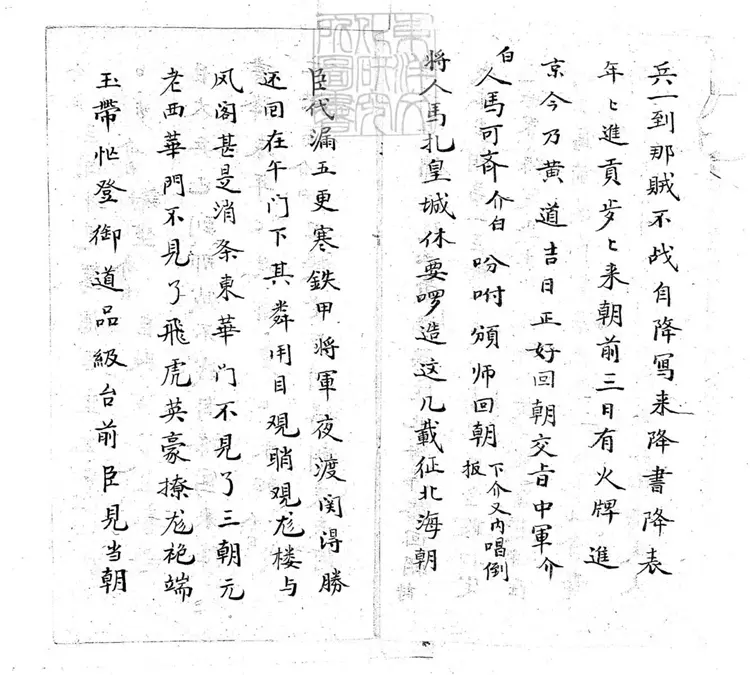 兵一到那賊不战自降寫来降書降表
年〻進貢步〻来朝前三日有火牌進
京今乃黄道吉日正好回朝交旨中軍介
白人馬可斉介白吩咐頒师回朝下介又内唱倒板
将人馬扎皇城休要啰造这几載征北海朝
臣代漏五更寒鉄甲将軍夜渡関得勝
还回在午门下其粦用目观睄观尨楼与
凤阁甚是消条東華门不見了三朝元
老西華門不見了飛虎英豪撩尨袍端
玉帶忙登御道品級台前臣見当朝
東洋文
化研究
所圖書